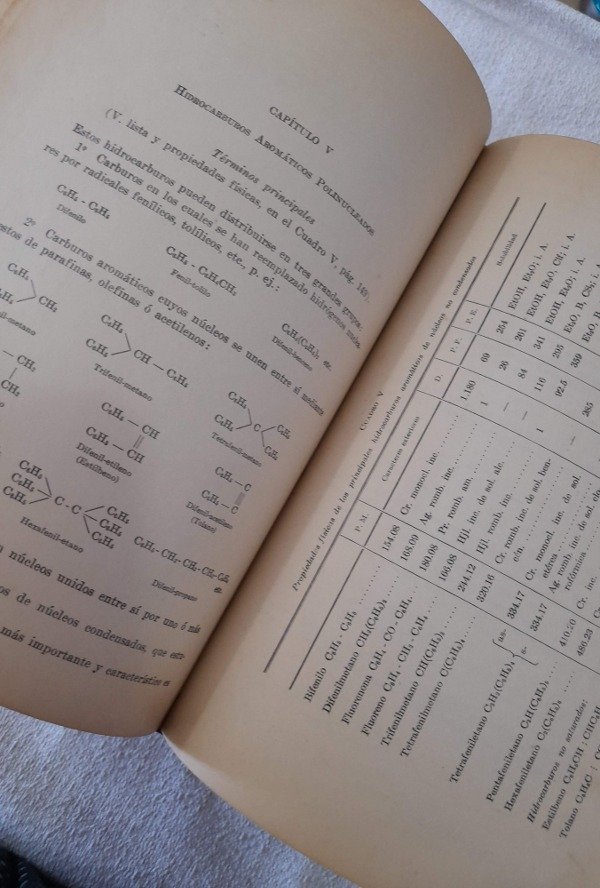 CAPÍTULO V
HIDROCARBUROS AROMÁTICOS POLINUCLEADOS
(V. lista y propiedades físicas, en el Cuadro V, pág. 149).
Términos principales
Estos hidrocarburos pueden distribuirse en tres grandes grupos:
1º Carburos en los cuales se han reemplazado hidrógenos
res por radicales fenílicos, tolílicos, etc., p. ej.:
C₆H₅ - C₆H₅
Difenilo
C₆H₅ - C₆H₄CH₃
Fenil-tolilo
C₆H₄(C₆H₅)₂ etc.
Difenil-benceno
2º Carburos aromáticos cuyos núcleos se unen entre sí mediante
restos de parafinas, olefinas ó acetilenos:
C₆H₅
CH₂
C₆H₅
CH — C₆H₅
C₆H₅
Trifenil-metano
C₆H₅
C
C₆H₅
Tetrafenil-metano
CH₂
CH₂
C₆H₅ — CH
C₆H₅ — CH
Difenil-etileno
(Estilbeno)
C₆H₅ — C
C₆H₅ — C
Difenil-acetileno
(Tolano)
C₆H₅
C₆H₅
C₆H₅
C - C
C₆H₅
C₆H₅
C₆H₅
Hexafenil-etano
C₆H₅ - CH₂ - CH₂ - CH₂ - C₆H₅
Difenil-propano
etc.
núcleos unidos entre sí por uno ó más
de núcleos condensados, que
más importante y característico
CUADRO V
Propiedades físicas de los principales hidrocarburos aromáticos de núcleos no condensados
P. M. Caracteres exteriores D. P. F. P. E. Solubilidad
Bifenilo C₆H₅ - C₆H₅ 154.08 Cr. monocl. inc. 1.180 69 254 EtOH, Et₂O; i. A.
Difenilmetano CH₂(C₆H₅)₂ 168.09 Ag. romb. inc. 1 26 261 EtOH, Et₂O, CS₂; i. A.
Fluorenona C₆H₄ - CO - C₆H₄ 180.08 Pr. romb. am. — 84 341 EtOH, Et₂O; i. A.
Fluoreno C₆H₄ - CH₂ - C₆H₄ 166.08 Hjl. inc. de sol. alc. — 116 295 EtOH, Et₂O, CS₂; i. A.
Trifenilmetano CH(C₆H₅)₃ 244.12 Hjl. romb. inc. 1 92.5 359 Et₂O, B, CS₂; i. A.
Tetrafenilmetano C(C₆H₅)₄ 320.16 Cr. romb. inc. de sol. ben-
cén. —
Tetrafeniletano C₂H₂(C₆H₅)₄ as- 334.17 Cr. monocl. inc. de sol.
s- 334.17 Ag. romb. inc. de sol.
Pentafeniletano C₂H(C₆H₅)₅
Hexafeniletano C₂(C₆H₅)₆ 486.23 Cr. inc.
Hidrocarburos no saturados:
Estilbeno C₆H₅CH : CHC₆H₅
Tolano C₆H₅C